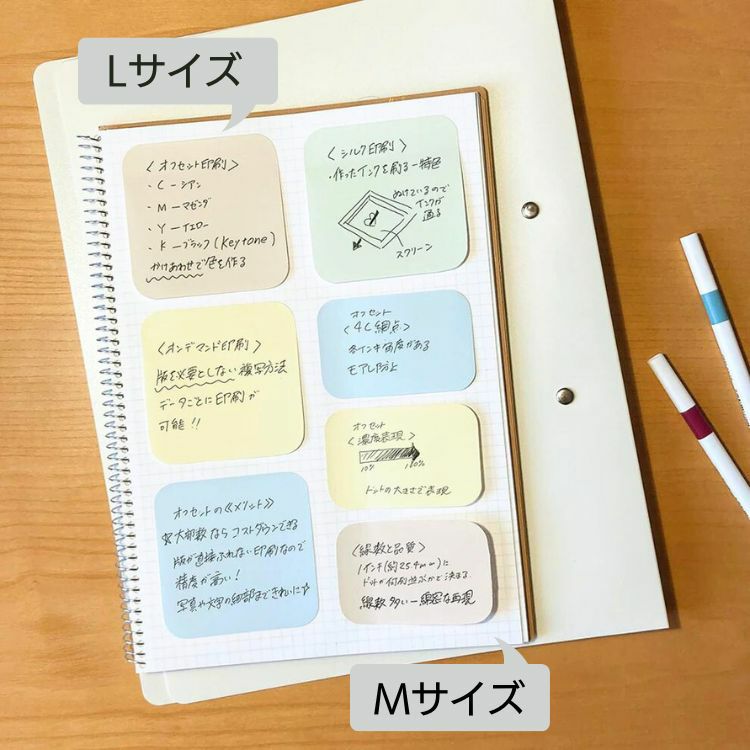 Lサイズ
〈オフセット印刷〉
・C ー シアン
・M ー マゼンダ
・Y ー イエロー
・K ー ブラック(Keytone)
かけあわせで色を作る
〈シルク印刷〉
・作ったインクを刷る ー 特色
ぬけているので
インクが
通る
スクリーン
〈オンデマンド印刷〉
版を必要としない複写方法
データごとに印刷が
可能!!
オフセット
〈4C網点〉
各インキ角度がある
モアレ防止
オフセット
〈濃度表現〉
10% 100%
ドットの大きさで表現
オフセットの《メリット》
大部数ならコストダウンできる
版が直接ふれない印刷なので
精度が高い!
写真や文字の細部まできれいに☆
〈線数と品質〉
1インチ(約25.4mm)に
ドットが何個並ぶかと決まる
線数多い ー 綿密な再現
Mサイズ